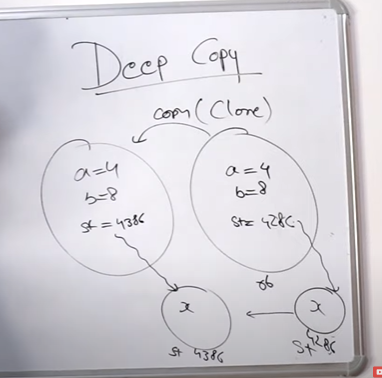 Deep Copy
copy (Clone)
a=4
b=8
st = 4386
a=4
b=8
st= 4286
ob
x
st 4386
x
st 4286